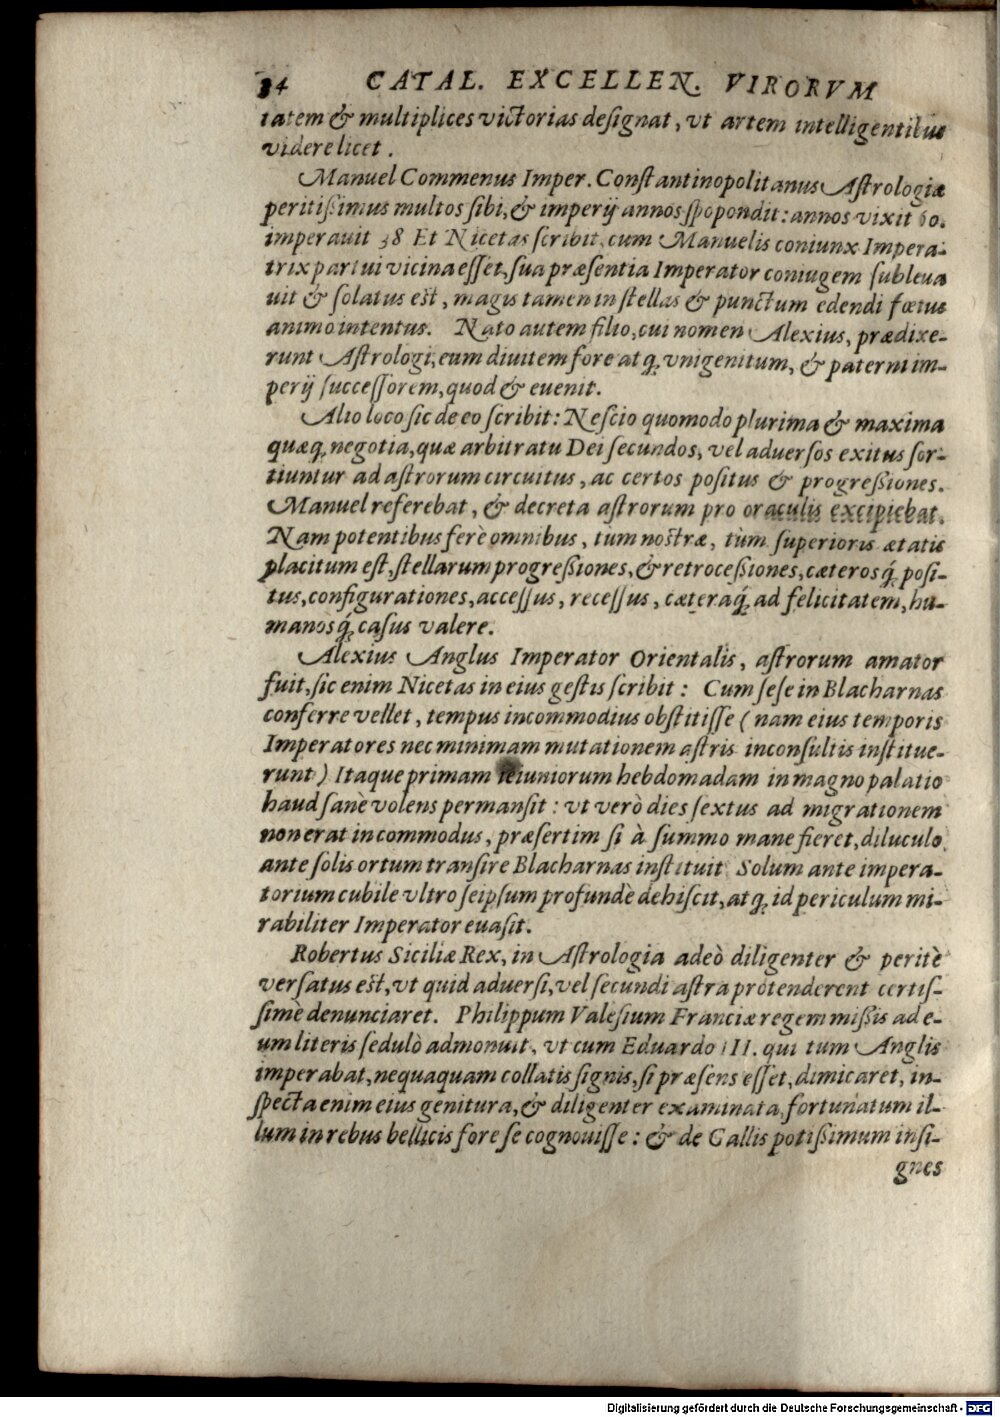 34 CATAL. EXCELLEN. VIRORVM
tatem & multiplices victorias deſignat, vt artem intelligentibus
videre licet.
Manuel Commenus Imper. Conſtantinopolitanus Aſtrologiæ
peritißimus multos ſibi, & imperij annos ſpopondit: annos vixit 60.
imperauit 38 Et Nicetas ſcribit, cum Manuelis coniunx Impera-
trix partui vicina eſſet, ſua præſentia Imperator coniugem ſubleua
uit & ſolatus eſt, magis tamen in ſtellas & punctum edendi fœtus
animo intentus. Nato autem filio, cui nomen Alexius, prædixe-
runt Aſtrologi, eum diuitem fore atq; vnigenitum, & paterni im-
perij ſucceſſorem, quod & euenit.
Alio loco ſic de eo ſcribit: Neſcio quomodo plurima & maxima
quæq; negotia, quæ arbitratu Dei ſecundos, vel aduerſos exitus ſor-
tiuntur ad aſtrorum circuitus, ac certos poſitus & progreßiones.
Manuel referebat, & decreta aſtrorum pro oraculis excipiebat.
Nam potentibus ferè omnibus, tum noſtræ, tùm ſuperioris ætatis
placitum eſt, ſtellarum progreßiones, & retroceßiones, cæteros q́; poſi-
tus, configurationes, acceſſus, receſſus, cæteraq́; ad felicitatem, hu-
manos q́; caſus valere.
Alexius Anglus Imperator Orientalis, aſtrorum amator
fuit, ſic enim Nicetas in eius geſtis ſcribit: Cum ſeſe in Blacharnas
conferre vellet, tempus incommodius obſtitiſſe (nam eius temporis
Imperatores nec minimam mutationem aſtris inconſultis inſtitue-
runt) Itaque primam ieiuniorum hebdomadam in magno palatio
haud ſanè volens permanſit: vt verò dies ſextus ad migrationem
non erat incommodus, præſertim ſi à ſummo mane fieret, diluculo
ante ſolis ortum tranſire Blacharnas inſtituit. Solum ante impera-
torium cubile vltro ſeipſum profundè dehiſcit, atq; id periculum mi-
rabiliter Imperator euaſit.
Robertus Siciliæ Rex, in Aſtrologia adeò diligenter & peritè
verſatus eſt, vt quid aduerſi, vel ſecundi aſtra protenderent certiſ-
ſimè denunciaret. Philippum Valeſium Franciæ regem mißis ad e-
um literis ſedulò admonuit, vt cum Eduardo III. qui tum Anglis
imperabat, nequaquam collatis ſignis, ſi præſens eſſet, dimicaret, in-
ſpecta enim eius genitura, & diligenter examinata, fortunatum il-
lum in rebus bellicis fore ſe cognouiſſe: & de Gallis potißimum inſi-
gnes
Digitalisierung gefördert durch die Deutsche Forschungsgemeinschaft - DFG